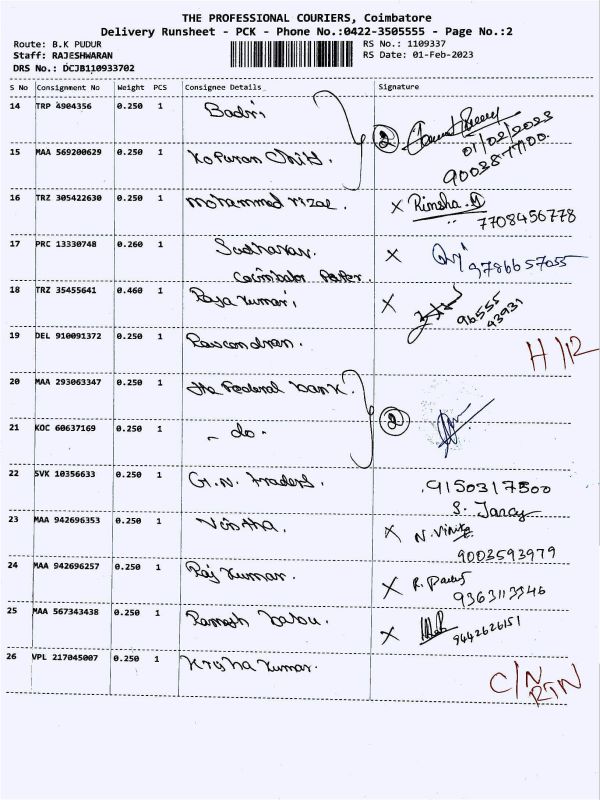 THE PROFESSIONAL COURIERS, Coimbatore
Delivery Runsheet - PCK - Phone No.:0422-3505555 - Page No.:2
Route: B.K PUDUR
Staff: RAJESHWARAN
DRS No.: DCJB110933702
RS No.: 1109337
RS Date: 01-Feb-2023
S No Consignment No Weight PCS Consignee Details Signature
14 TRP 4904356 0.250 1 Badri. 2
01/02/2023
15 MAA 569200629 0.250 1 9003877100.
16 TRZ 305422630 0.250 1 mohammed rizal. X Rimsha.M
7708456778
17 PRC 13330748 0.260 1 Sudharsan. X 9786657055
Coimbator
18 TRZ 35455641 0.460 1 Raja kumari, X 96555
43931
19 DEL 910091372 0.250 1 H/R
20 MAA 293063347 0.250 1 the Federal bank. 2
21 KOC 60637169 0.250 1 - do -
22 SVK 10356633 0.250 1 G.N. Traders. 9150317500
23 MAA 942696353 0.250 1 X N.
9003593979
24 MAA 942696257 0.250 1 Raj kumar. X R.
9363113346
25 MAA 567343438 0.250 1 Ramesh babu. X 9442626151
26 VPL 217045007 0.250 1 Krishakumar. C/N
RTN